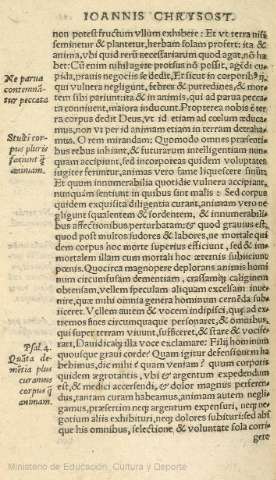 IOANNIS CHRYSOST.
non potest fructum vllum exhibere: Et vt terra nisi
seminetur & plantetur, herbam solam profert: ita &
anima, vbi quid rerũ necessariarum quod agat, nõ ha-
bet: Cũ enim nihil agere prorsus nõ possit, agẽdi cu-
pida, prauis negociis se dedit. Et sicut in corporib9
qui vulnera negligunt, febres & putredines, & mor-
tem sibi pariunt: ita & in animis, qui ad parua pecca
ta conniuent, maiora inducunt. Propterea nobis è ter
ra corpus dedit Deus, vt id etiam ad cœlum reduca-
mus, non vt per id animam etiam in terram detraha-
mus. O rem mirandam: Quomodo omnes præsenti-
bus rebus inhiant, & futurarum intelligentiam nun-
quam accipiunt, sed incorporeas quidem voluptates
iugiter feruntur, animas vero fame liquescere sinũt
Et quum innumerabilia quotidie vulnera accipiunt,
nunquàm sentiunt in quibus sunt malis: Sed corpus
quidem exquisita diligentia curant, animam vero ne
gligunt squalentem & sordentem, & innumerabili-
bus affectionibus perturbatam: & quod grauius est,
quod post multos sudores & labores, ne mortale qui
dem corpus hoc morte superius efficiunt, sed & im-
mortalem illam cum mortali hoc æternis subiiciunt
pœnis. Quocirca magnopere deplorans animis homi
num circumfusam dementiam, crassamq; caliginem
obtensam, vellem speculam aliquam excelsam inue-
nire, quæ mihi omnia genera hominum cernẽda sub-
iiceret. Vellem autem & vocem indipisci, quæ ad ex-
tremos fines circumquaque personaret, & omnibus,
qui super terram viuunt, sufficeret, & stare & vocife-
rari, Dauidicaq; illa voce exclamare: Filij hominum
quousque graui corde? Quam igitur defensionem ha
bebimus, dic mihi? quam veniam? quum corporis
quidem ægrotantis, vbi & argentum expendendum
est, & medici accersendi, & dolor magnus perferen-
dus, tantam curam habeamus, animam autem negli-
gamus, præsertim neq; argentum expensuri, neq; ne-
gotium aliis exhibituri, neq; dolores subituri: sed abs
que his omnibus, selectione, & voluntate sola corri
gere
Ne parua
contemnã-
tur peccata
Studẽt cor-
pus pluris
faciunt q̃
animam.
Psal. 4.
Quãta de-
mẽtia plus
curamus
corpus q̃
animam.
Ministerio de Educación, Cultura y Deporte